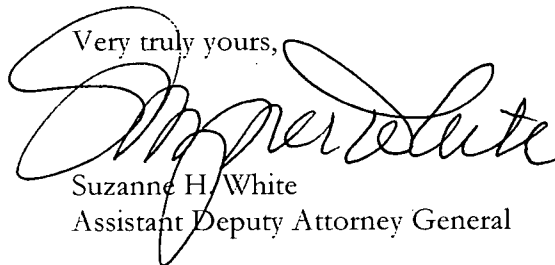 Very truly yours,
Suzanne White
Suzanne H. White
Assistant Deputy Attorney General